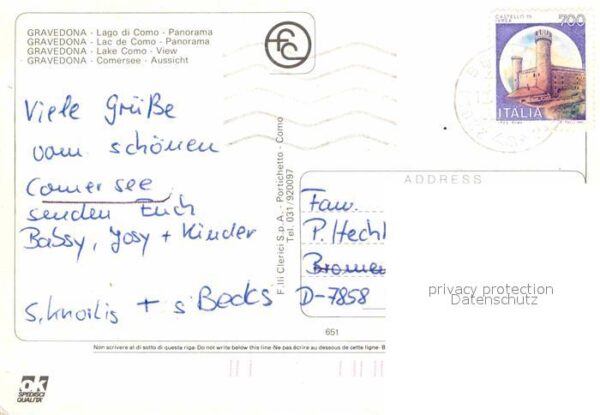 GRAVEDONA - Lago di Como - Panorama
GRAVEDONA - Lac de Como - Panorama
GRAVEDONA - Lake Como - View
GRAVEDONA - Comersee - Aussicht
CASTELLO DI
IVREA
700
ITALIA
Viele Grüße
vom schönen
Comer see
senden Euch
Babsy, Josy + Kinder
+ s' Becks
F.lli Clerici S.p.A. - Portichetto - Como
Tel. 031/920097
ADDRESS
Fam.
P. Hecht
D-7858
privacy protection
Datenschutz
651
Non scrivere al di sotto di questa riga - Do not write below this line - Ne pas écrire au dessous de cette ligne - B
ok
SPEDISCI
QUALITA'